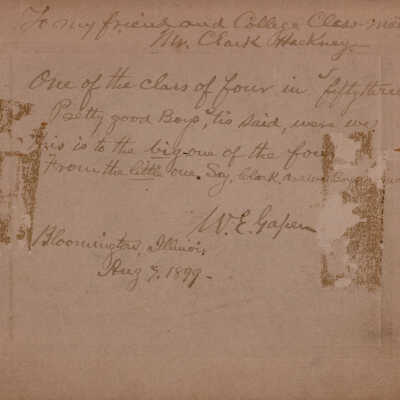 To my friend and College Class-mate
Mr. Clark Hackney-
One of the class of four in 'fifty three
Pretty good Boys, 'tis said, were we
This is to the big one of the four
From the little one. Say, Clark, are we Boys
W. E. Gapen
Bloomington, Illinois,
Aug 7, 1899-